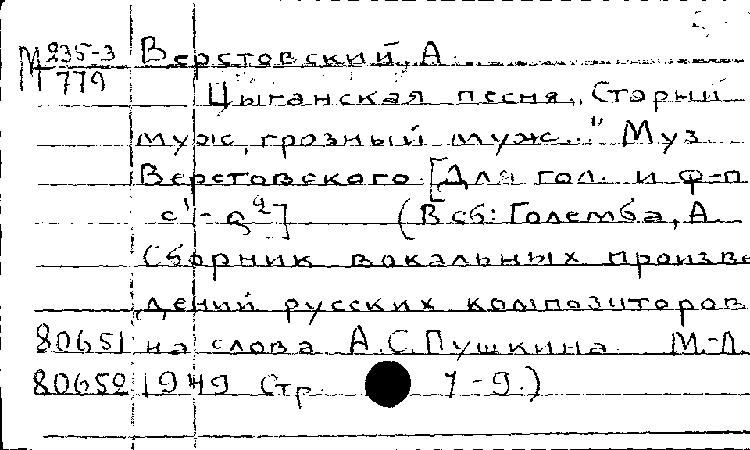 М 235-3 Верстовский, А.
779
Цыганская песня „Старый
муж, грозный муж..." Муз
Верстовского [Для гол. и ф-п
c¹-g²] (В сб: Големба, А.
Сборник вокальных произве
дений русских композиторов
80651 на слова А.С.Пушкина М.-Л.
80652 1949 Стр. 7-9.)